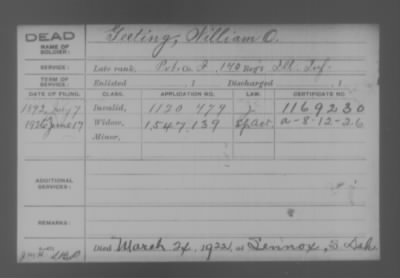 DEAD
NAME OF SOLDIER: Geeting, William O.
SERVICE: Late rank, Pvt. Co. I, 140 Reg't Ill. Inf.
TERM OF SERVICE: Enlisted , 1 Discharged , 1
DATE OF FILING. CLASS. APPLICATION NO. LAW. CERTIFICATE NO.
1892, July 7 Invalid, 1120 479 1169230
1926 June 17 Widow, 1,547,139 Sp. Act. a-8-12-26
Minor,
ADDITIONAL SERVICES:
REMARKS:
Died March 24, 1922, at Lennox, S. Dak.